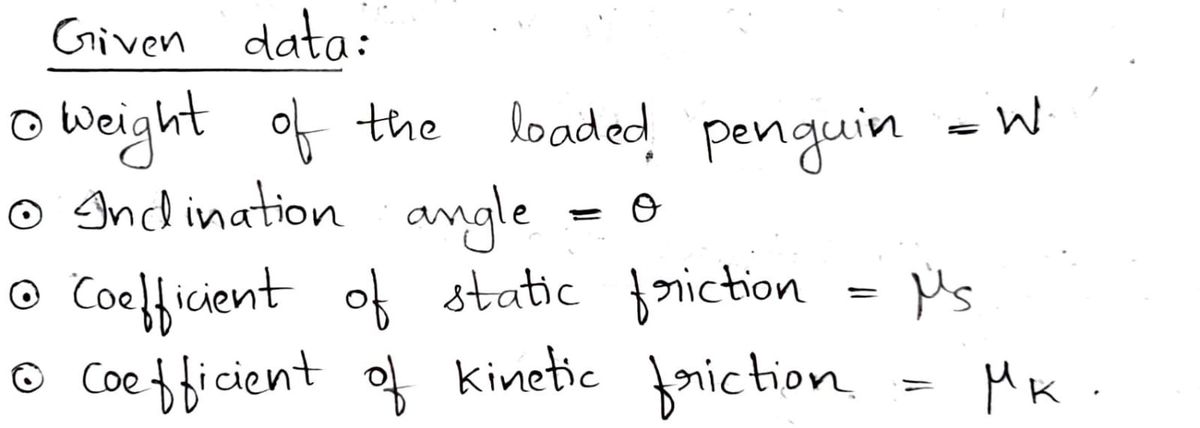 Given data:
⊙ Weight of the loaded penguin = W
⊙ Inclination angle = θ
⊙ Coefficient of static friction = μs
⊙ Coefficient of kinetic friction = μK.